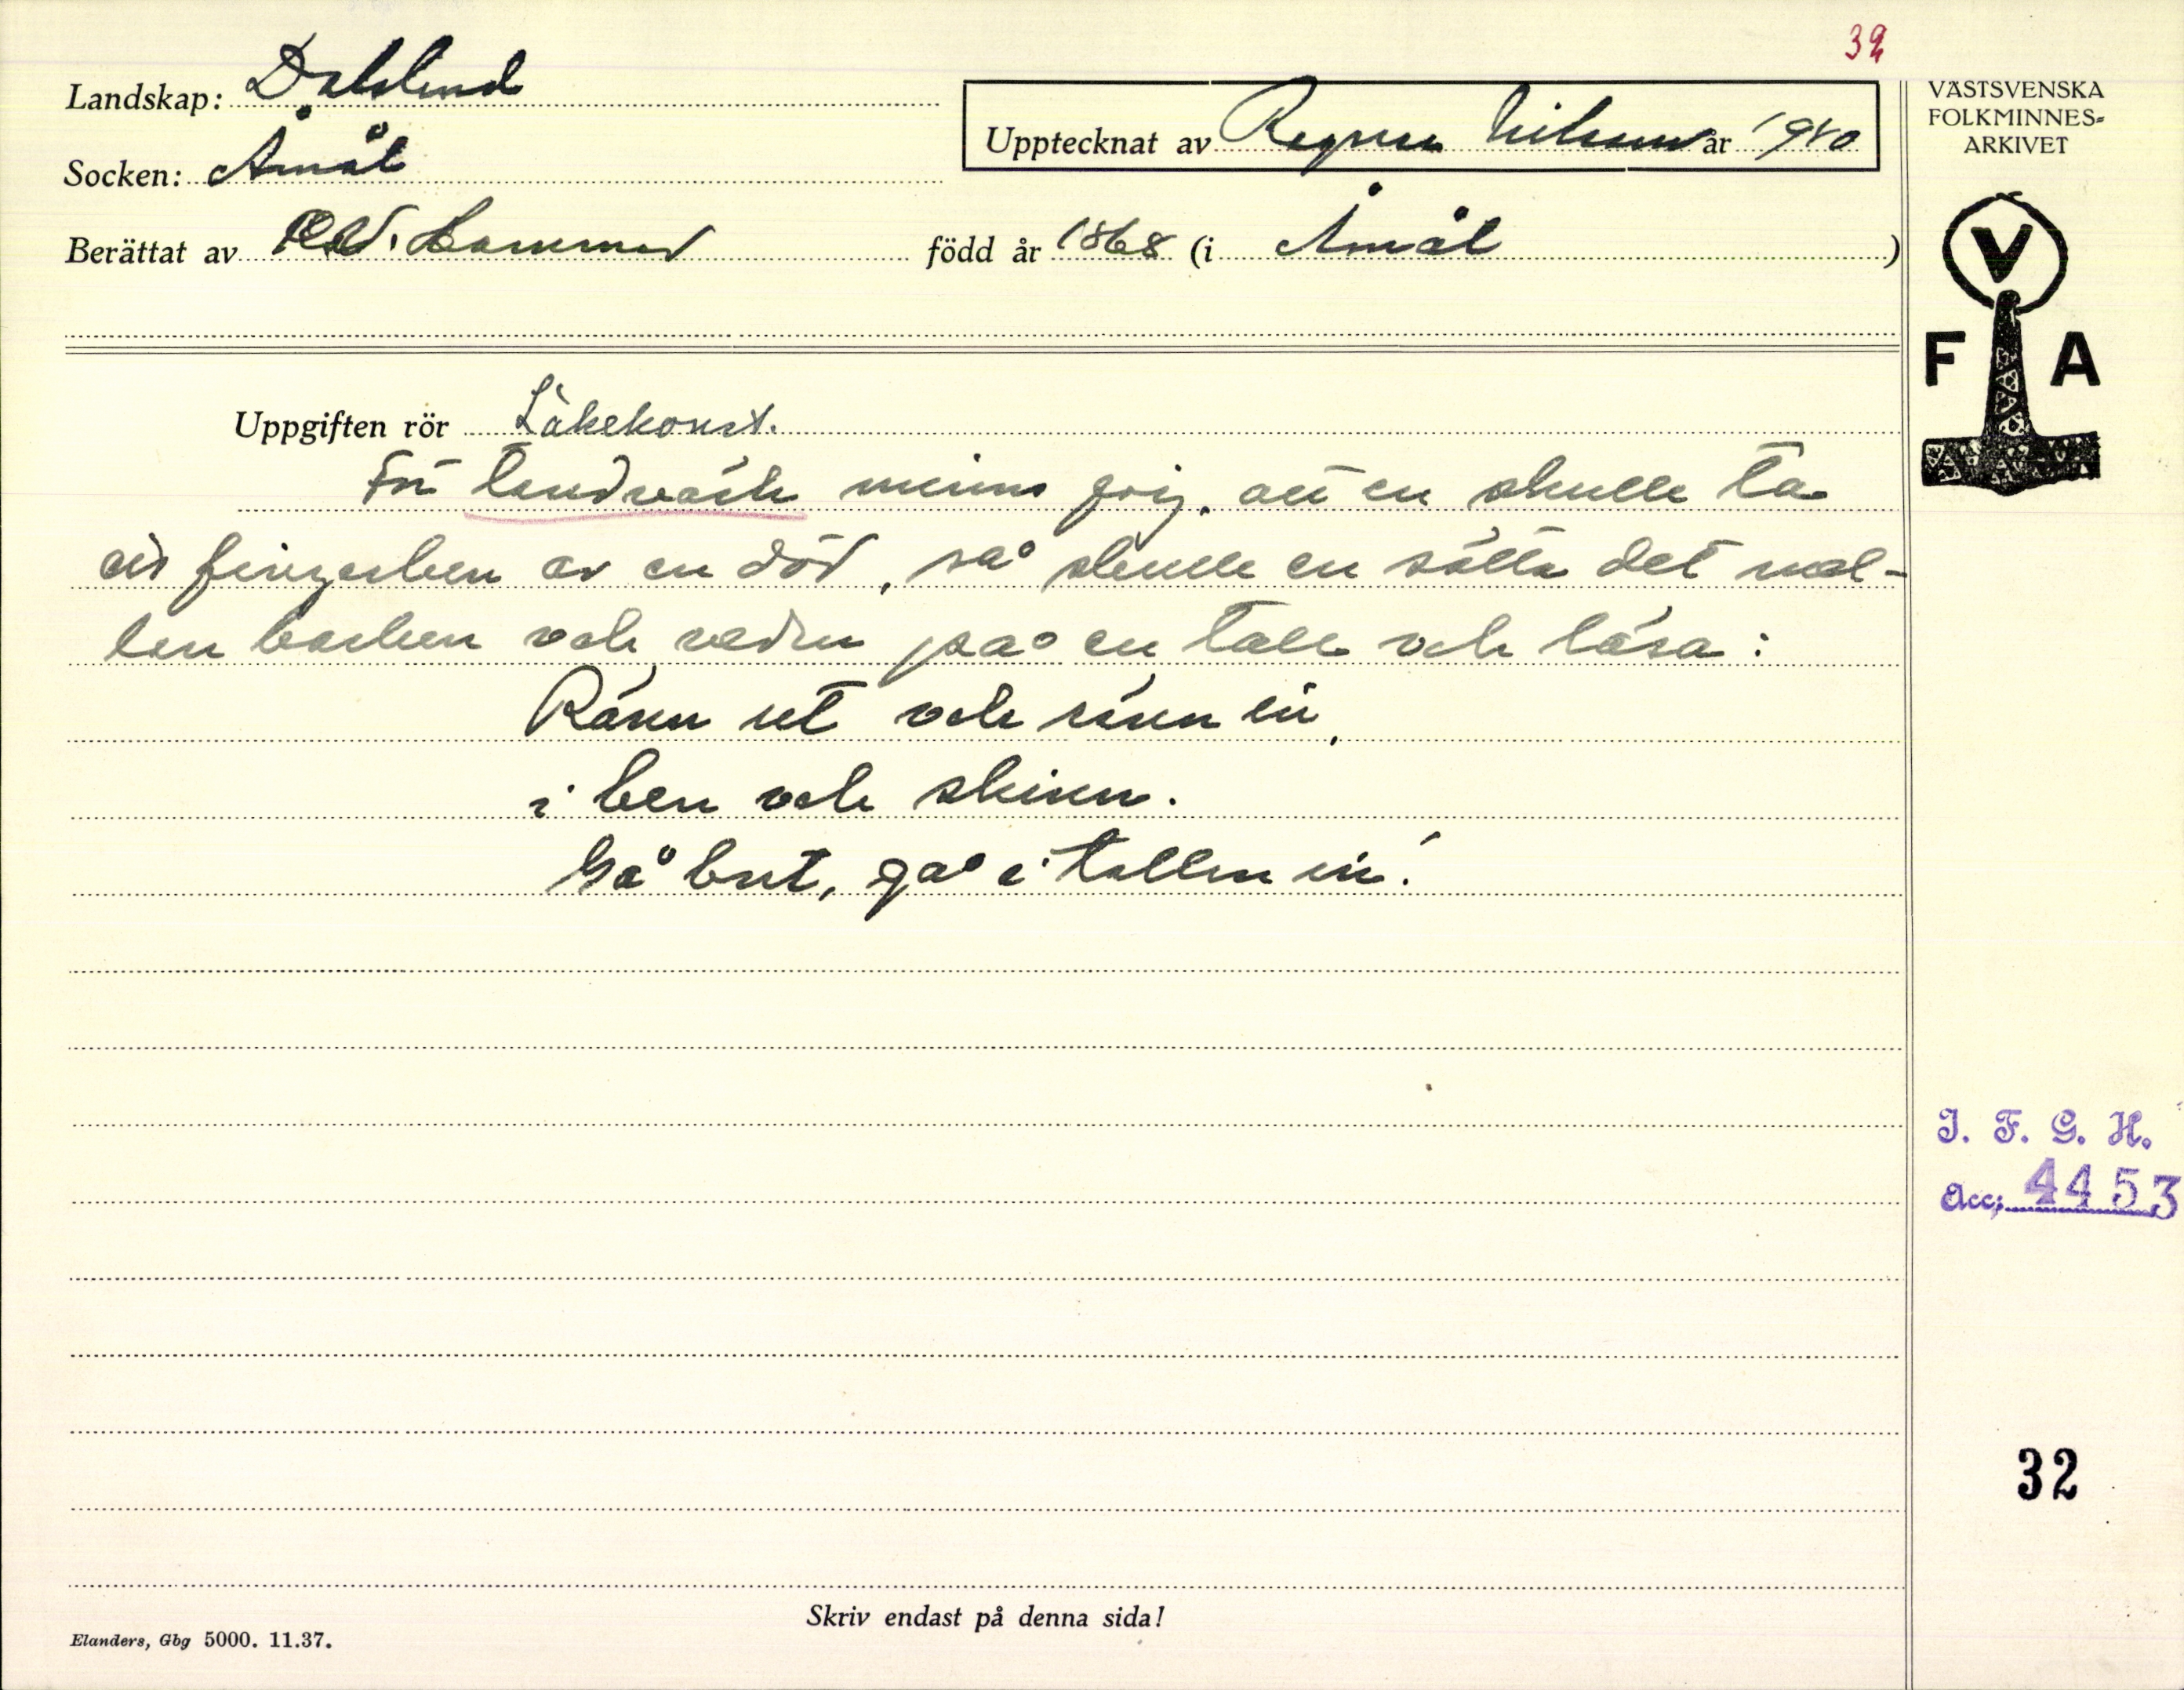 32
Landskap: Dalsland
Socken: Åmål
Upptecknat av Ragnar Nilsson år 1940
Berättat av Hammar född år 1868 (i Åmål)
VÄSTSVENSKA
FOLKMINNES-
ARKIVET
V
F A
Uppgiften rör Läkekonst.
För tandvärk minns jeig, att en skulle ta
ett fingerben av en död, så skulle en sätta det mel-
len barken och veden på en tall och läsa:
Ränn ut och ränn in,
i ben och skinn.
Gå bort, gå i tallen in!
I. F. G. H.
Acc; 4453
32
Skriv endast på denna sida!
Elanders, Gbg 5000. 11.37.